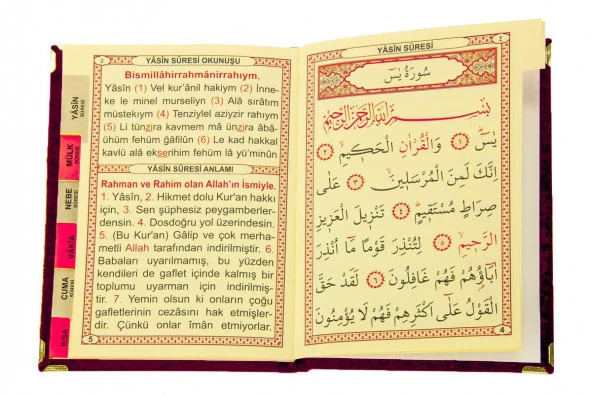 ٥
YÂSİN SÛRESİ OKUNUŞU
Bismillâhirrahmânirrahıym.
Yâsîn (1) Vel kur'ânil hakiym (2) İnne-
ke le minel murseliyn (3) Alâ sıratım
müstekıym (4) Tenziylel aziyzir rahıym
(5) Li tünzira kavmem mâ ünzira âbâ-
ühüm fehüm ğâfilûn (6) Le kad hakkal
kavlü alâ ekserihim fehüm lâ yü'minûn
YÂSİN SÛRESİ ANLAMI
Rahman ve Rahim olan Allah'ın İsmiyle.
1. Yâsîn, 2. Hikmet dolu Kur'an hakkı
için, 3. Sen şüphesiz peygamberler-
densin. 4. Dosdoğru yol üzerindesin.
5. (Bu Kur'an) Gâlip ve çok merha-
metli Allah tarafından indirilmiştir. 6.
Babaları uyarılmamış, bu yüzden
kendileri de gaflet içinde kalmış bir
toplumu uyarman için indirilmiş-
tir. 7. Yemin olsun ki onların çoğu
gafletlerinin cezasını hak etmişler-
dir. Çünkü onlar îmân etmiyorlar.
5
YÂSİN SÛRESİ
MÜLK SÛRESİ
NEBE SÛRESİ
VÂKIA
CUMA SÛRESİ
KISA
YÂSİN SÛRESİ
٤
سُورَةُ يٰسٓ
بِسْمِ اللّٰهِ الرَّحْمٰنِ الرَّحِيمِ
يٰسٓ ﴿١﴾ وَالْقُرْاٰنِ الْحَكِيمِ ﴿٢﴾
اِنَّكَ لَمِنَ الْمُرْسَلِينَ ﴿٣﴾ عَلٰى
صِرَاطٍ مُسْتَقِيمٍ ﴿٤﴾ تَنْزِيلَ الْعَزِيزِ
الرَّحِيمِ ﴿٥﴾ لِتُنْذِرَ قَوْمًا مَٓا اُنْذِرَ
اٰبَٓاؤُهُمْ فَهُمْ غَافِلُونَ ﴿٦﴾ لَقَدْ حَقَّ
الْقَوْلُ عَلٰٓى اَكْثَرِهِمْ فَهُمْ لَا يُؤْمِنُونَ
4